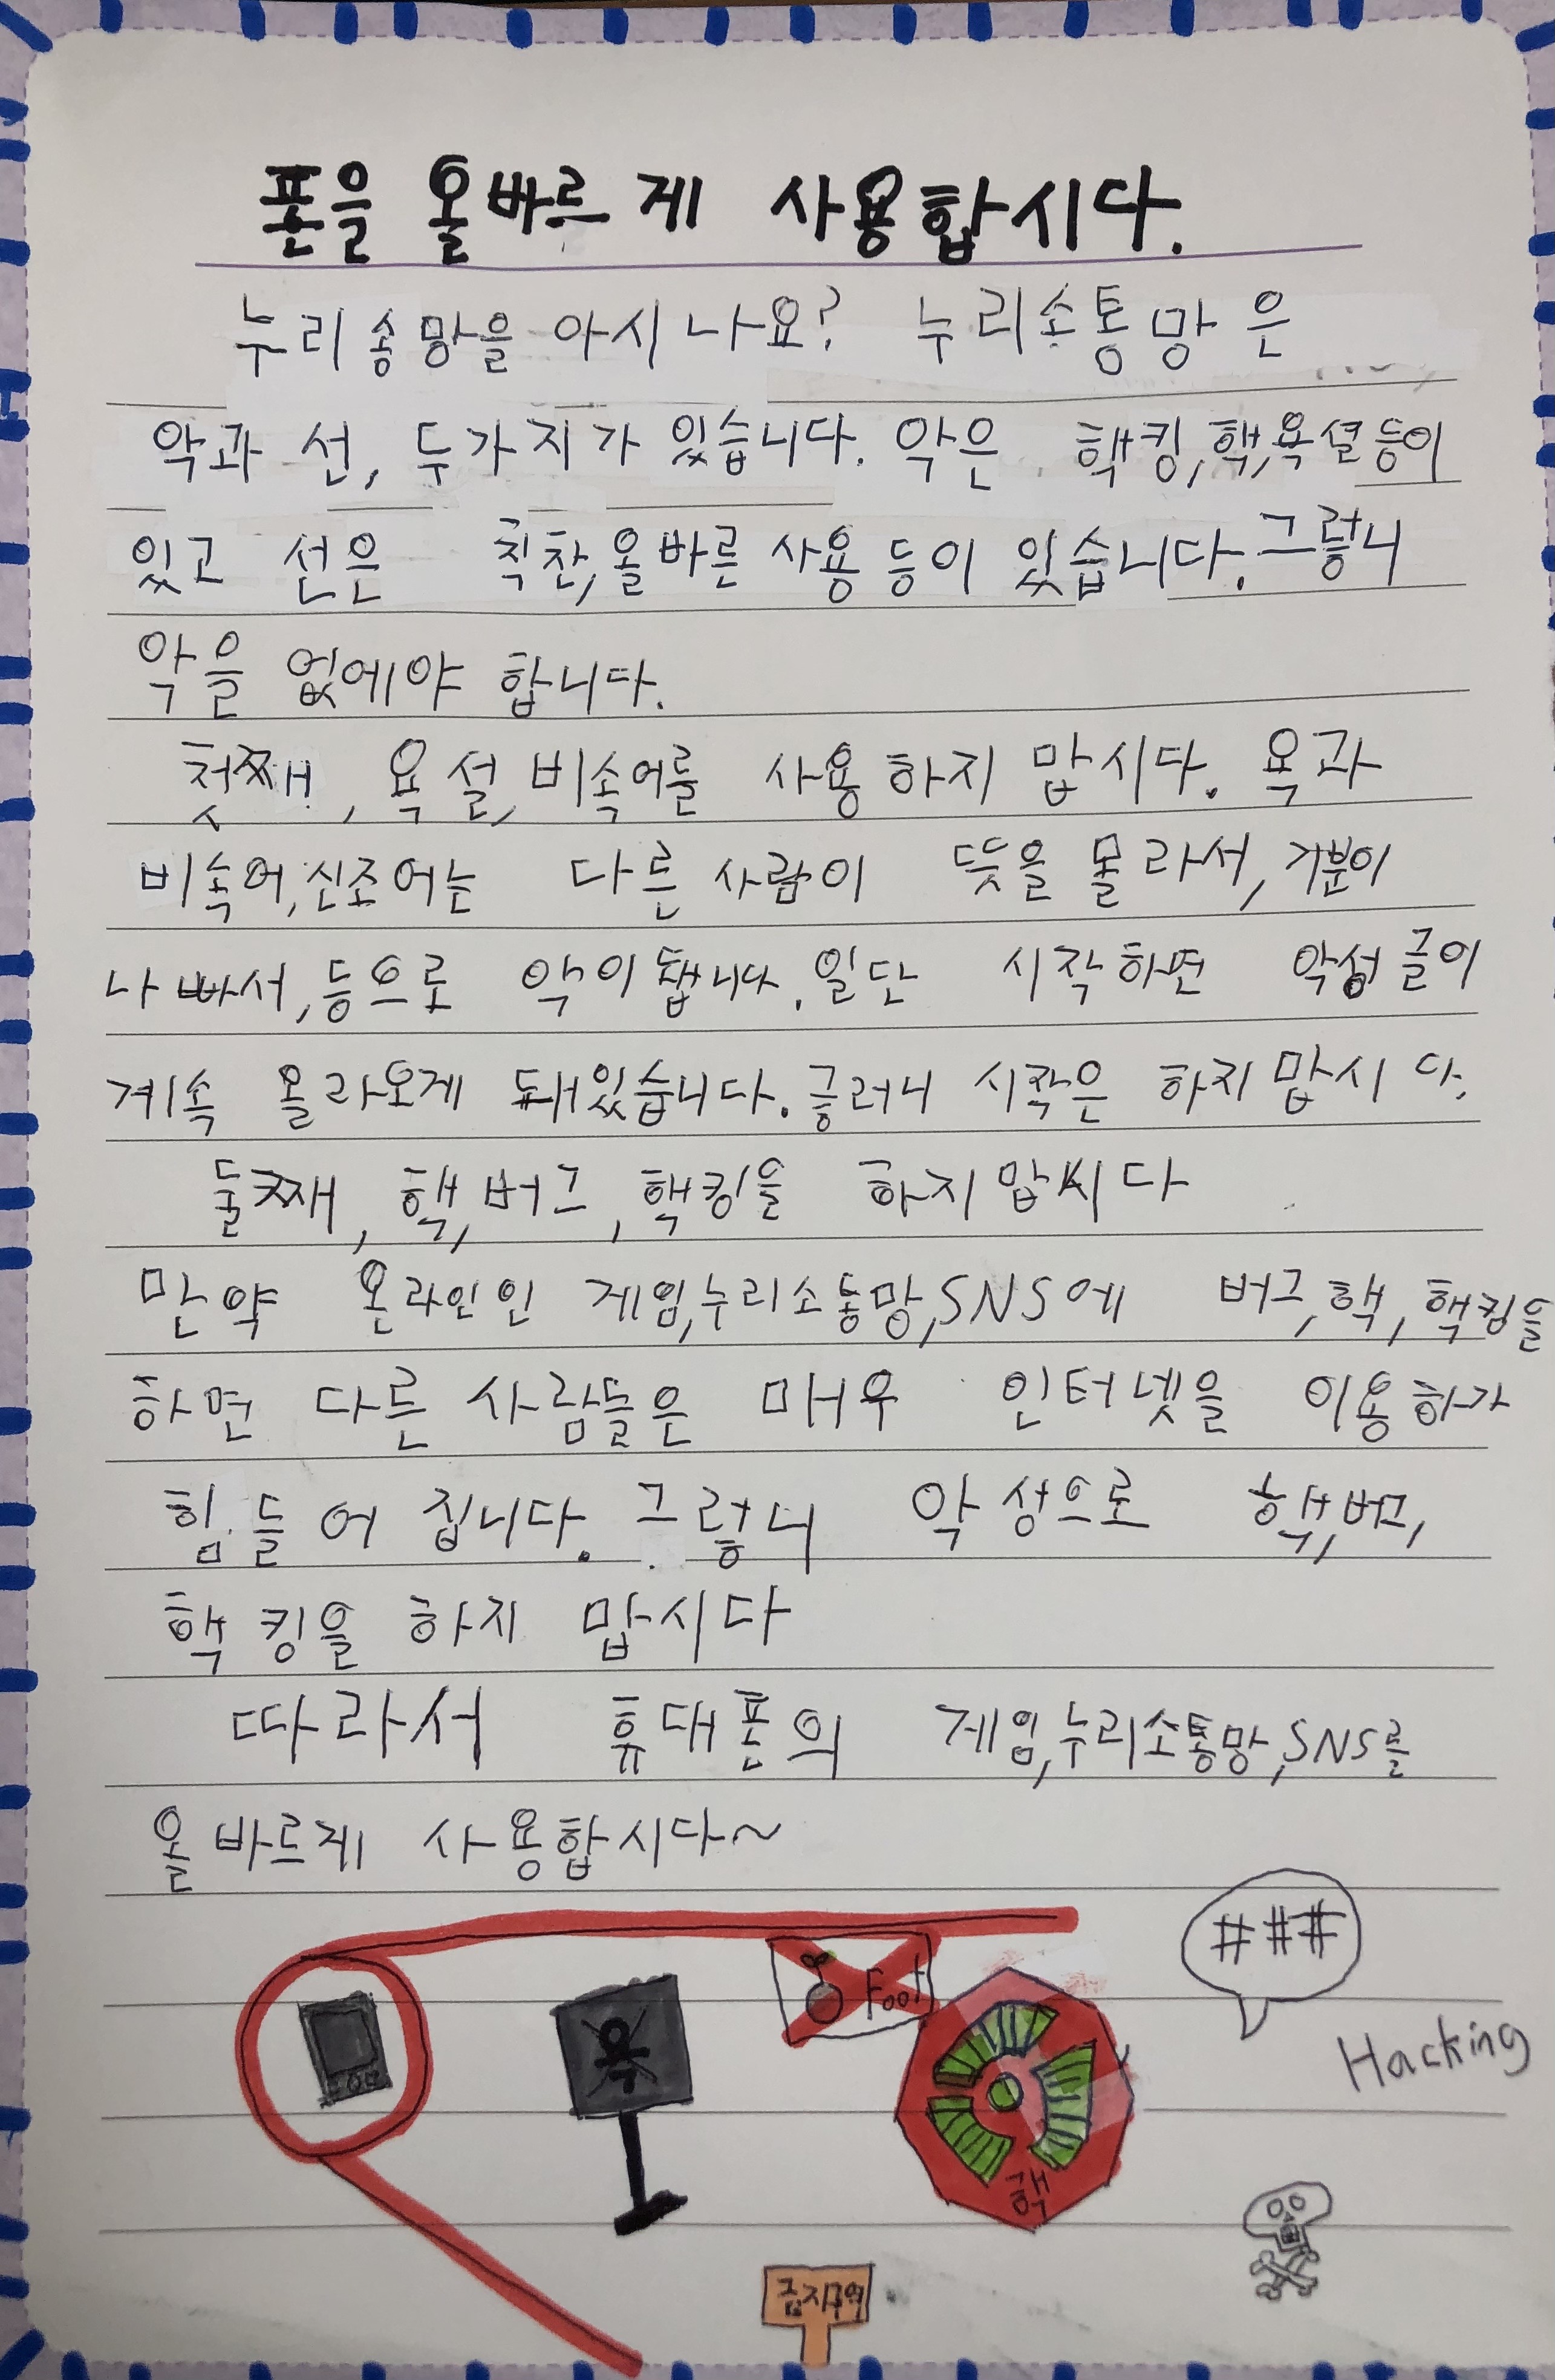 폰을 올바르게 사용합시다.
누리송망을 아시나요? 누리소통망은
악과 선, 두가지가 있습니다. 악은 핵킹,핵,욕설등이
있고 선은 칙찬,올바른 사용 등이 있습니다.그렇니
악을 없에야 합니다.
첫째, 욕설,비속어를 사용하지 맙시다. 욕과
비속어,신조어는 다른 사람이 뜻을 몰라서,기분이
나빠서,등으로 악이됍니다.일단 시작하면 악성글이
계속 올라오게 돼있습니다.긍러니 시작은 하지맙시다.
둘째, 핵,버그,핵킹을 하지맙씨다
만약 온라인인 게임,누리소통망,SNS에 버그,핵,핵킹을
하면 다른 사람들은 매우 인터넷을 이용하가
힘들어집니다. 그렇니 악성으로 핵,버그,
핵킹을 하지 맙시다
따라서 휴대폰의 게임,누리소통망,SNS를
올바르게 사용합시다~
###
Foot
욕
Hacking
핵
금지구역